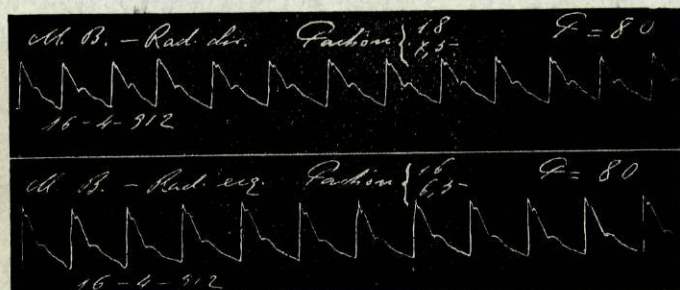 M. B. – Rad. dir. Pachon { 18
7,5 P = 80
16-4-912
M. B. – Rad. esq. Pachon { 16
6,5 P = 80
16-4-912